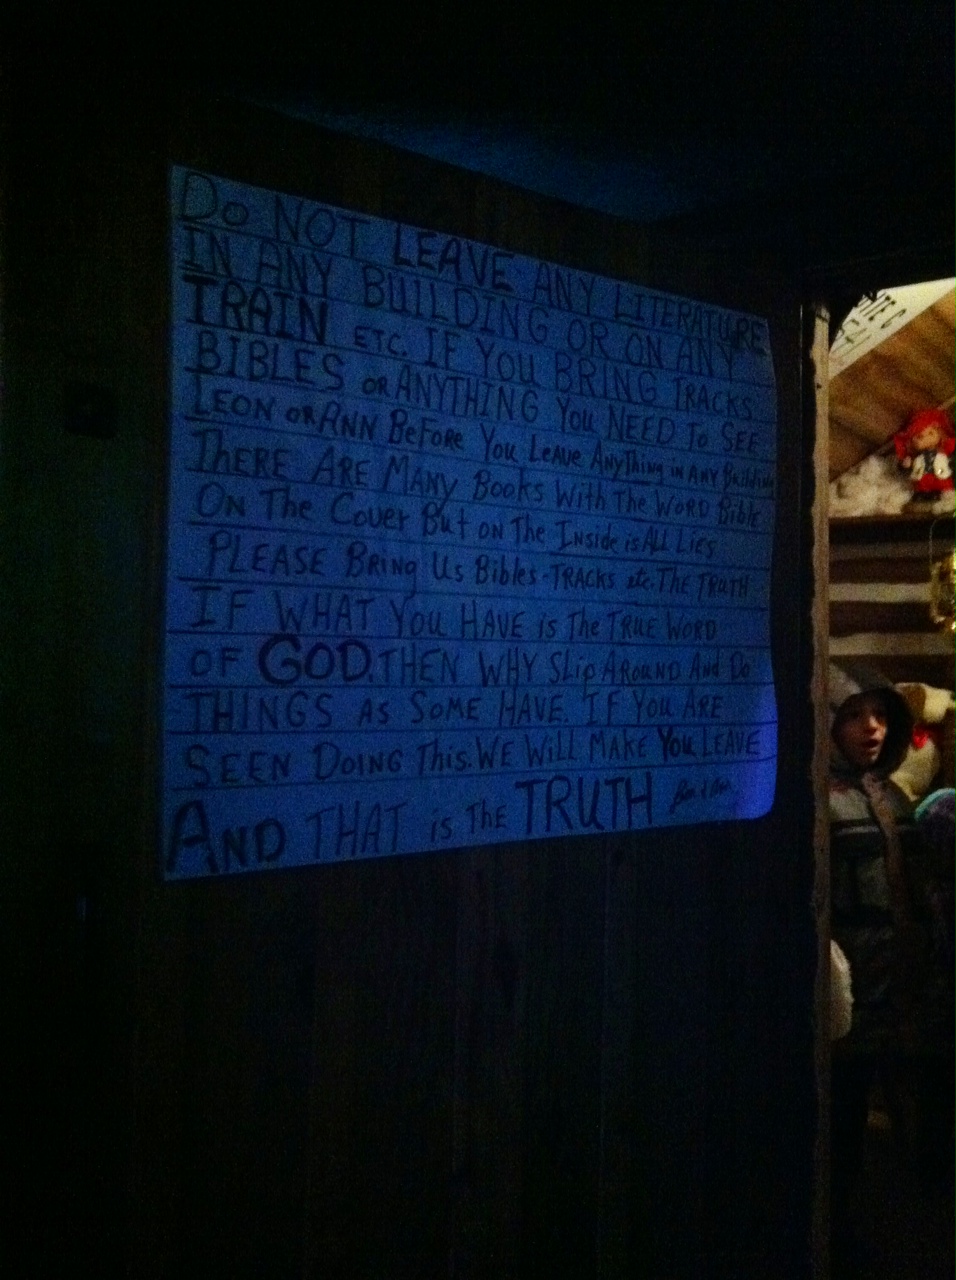 Do NOT LEAVE ANY LITERATURE
IN ANY BUILDING OR ON ANY
TRAIN ETC. IF YOU BRING TRACKS
BIBLES OR ANYTHING YOU NEED TO SEE
LEON OR ANN BEFORE YOU LEAVE ANYTHING IN ANY Building
THERE ARE MANY BOOKS WITH THE WORD Bible
ON THE COVER BUT ON THE INSIDE is ALL LIES
PLEASE BRING US Bibles-TRACKS etc. THE TRUTH
IF WHAT YOU HAVE is THE TRUE WORD
OF GOD. THEN WHY SLIP AROUND AND DO
THINGS AS SOME HAVE. IF YOU ARE
SEEN DOING THIS. WE WILL MAKE YOU LEAVE
AND THAT is THE TRUTH